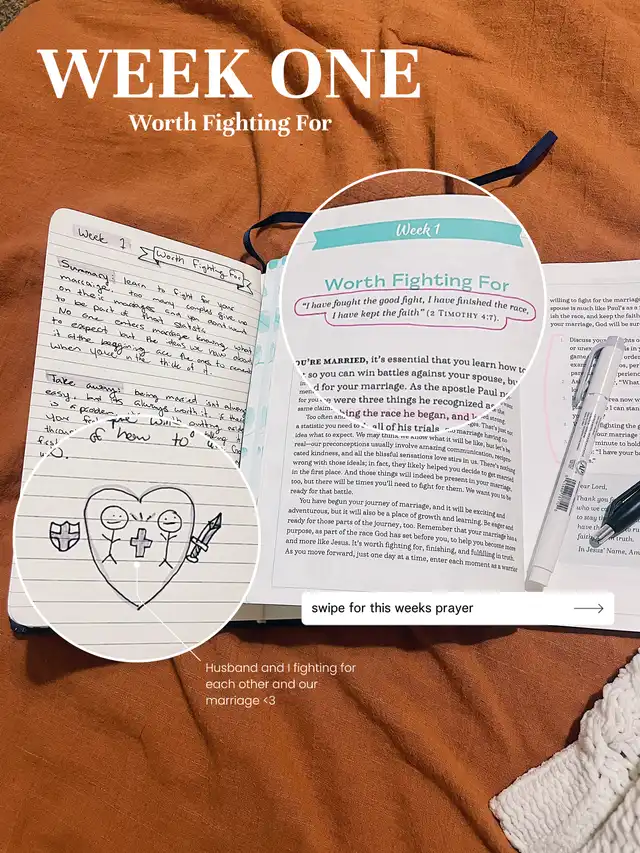 WEEK ONE
Worth Fighting For
Week 1
Worth Fighting For
Summary: learn to fight for your
marriage. too many couples give up
on their marriages and you don't want
to be part of those statists.
No one enters marriage knowing what
to expect but the
when you're in the thick of it.
Take away: being married isn't always
easy, but it's always worth it.
of "how to"
Week 1
Worth Fighting For
"I have fought the good fight, I have finished the race,
I have kept the faith" (2 TIMOTHY 4:7).
YOU'RE MARRIED, it's essential that you learn how to
so you can win battles against your spouse, bu
d for your marriage. As the apostle Paul n
were three things he recognized as
same claim.
bing the race he began, and k
Too often
all of his trials
a statistic you need to
idea what to expect. We may think we know what it will be like, but let's be
real—our preconceptions usually involve amazing communication, recipro-
cated kindness, and all the blissful sensations love stirs in us. There's nothing
wrong with those ideas; in fact, they likely helped you decide to get married
in the first place. And those things will indeed be present in your marriage,
too, but there will be times you'll need to fight for them. We want you to be
ready for that battle.
You have begun your journey of marriage, and it will be exciting and
adventurous, but it will also be a place of growth and learning. Be eager and
ready for those parts of the journey, too. Remember that your marriage has a
purpose, as part of the race God has set before you, to help you become more
and more like Jesus. It's worth fighting for, finishing, and fulfilling in truth.
As you move forward, just one day at a time, enter each moment as a warrior
willing to fight for the marriage
spouse is much like Paul's as a
ish the race, and keep the faith
your marriage, God will be sur
Dear Lord,
Thank you f
In Jesus' Name, Am
swipe for this weeks prayer
Husband and I fighting for
each other and our
marriage <3